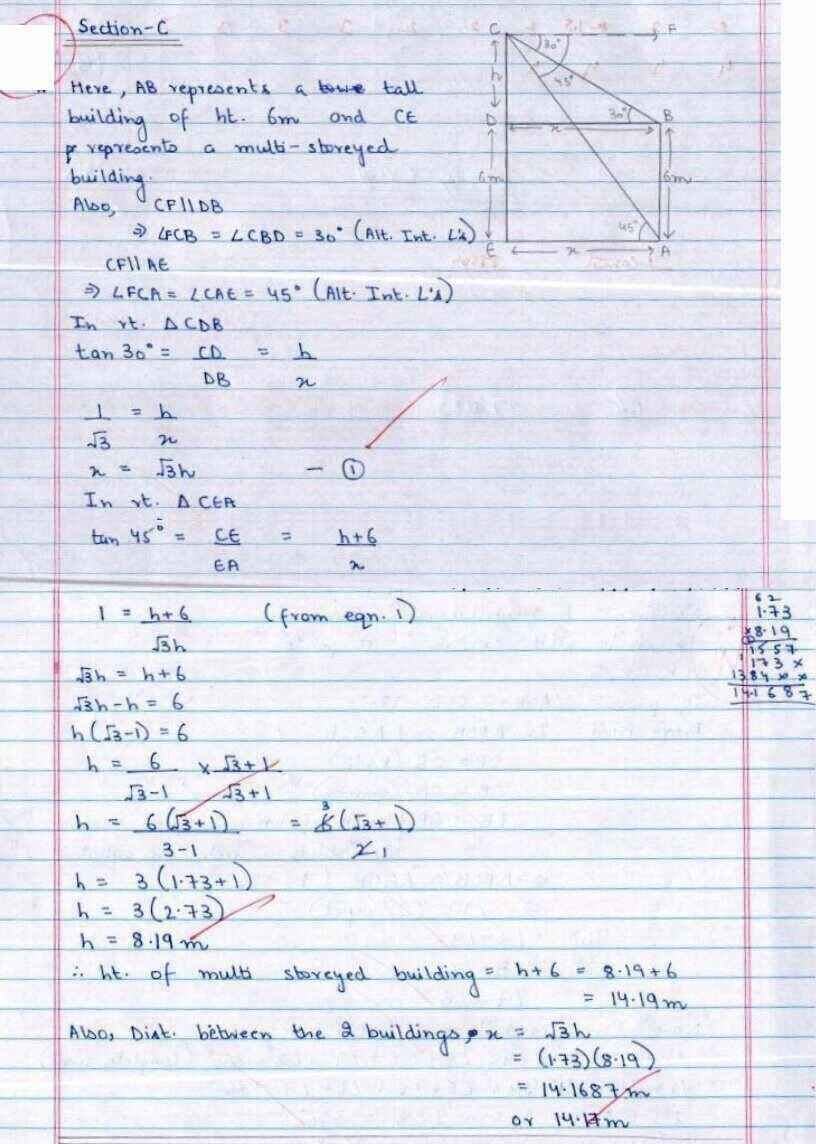 Section-C
Here, AB represents a towe tall
building of ht. 6m and CE
represents a multi-storeyed
building.
Also, CF||DB
⇒ ∠FCB = ∠CBD = 30° (Alt. Int. ∠'s)
CF||AE
⇒ ∠FCA = ∠CAE = 45° (Alt. Int. ∠'s)
In rt. Δ CDB
tan 30° = CD/DB = h/x
1/√3 = h/x
x = √3h — ①
In rt. Δ CEA
tan 45° = CE/EA = h+6/x
C F
30°
45°
h
D 30° B
x
6m 6m
45°
E x A
1 = h+6/√3h (from eqn. 1)
√3h = h+6
√3h-h = 6
h(√3-1) = 6
h = 6/√3-1 × √3+1/√3+1
h = 6(√3+1)/3-1 = 6(√3+1)/2 3 1
h = 3(1.73+1)
h = 3(2.73)
h = 8.19 m
∴ ht. of multi storeyed building = h+6 = 8.19+6
= 14.19 m
Also, Dist. between the 2 buildings, x = √3h
= (1.73)(8.19)
= 14.1687 m
or 14.17m
6 2
1.73
×8.19
1557
1 173 ×
1384 × ×
14.1687